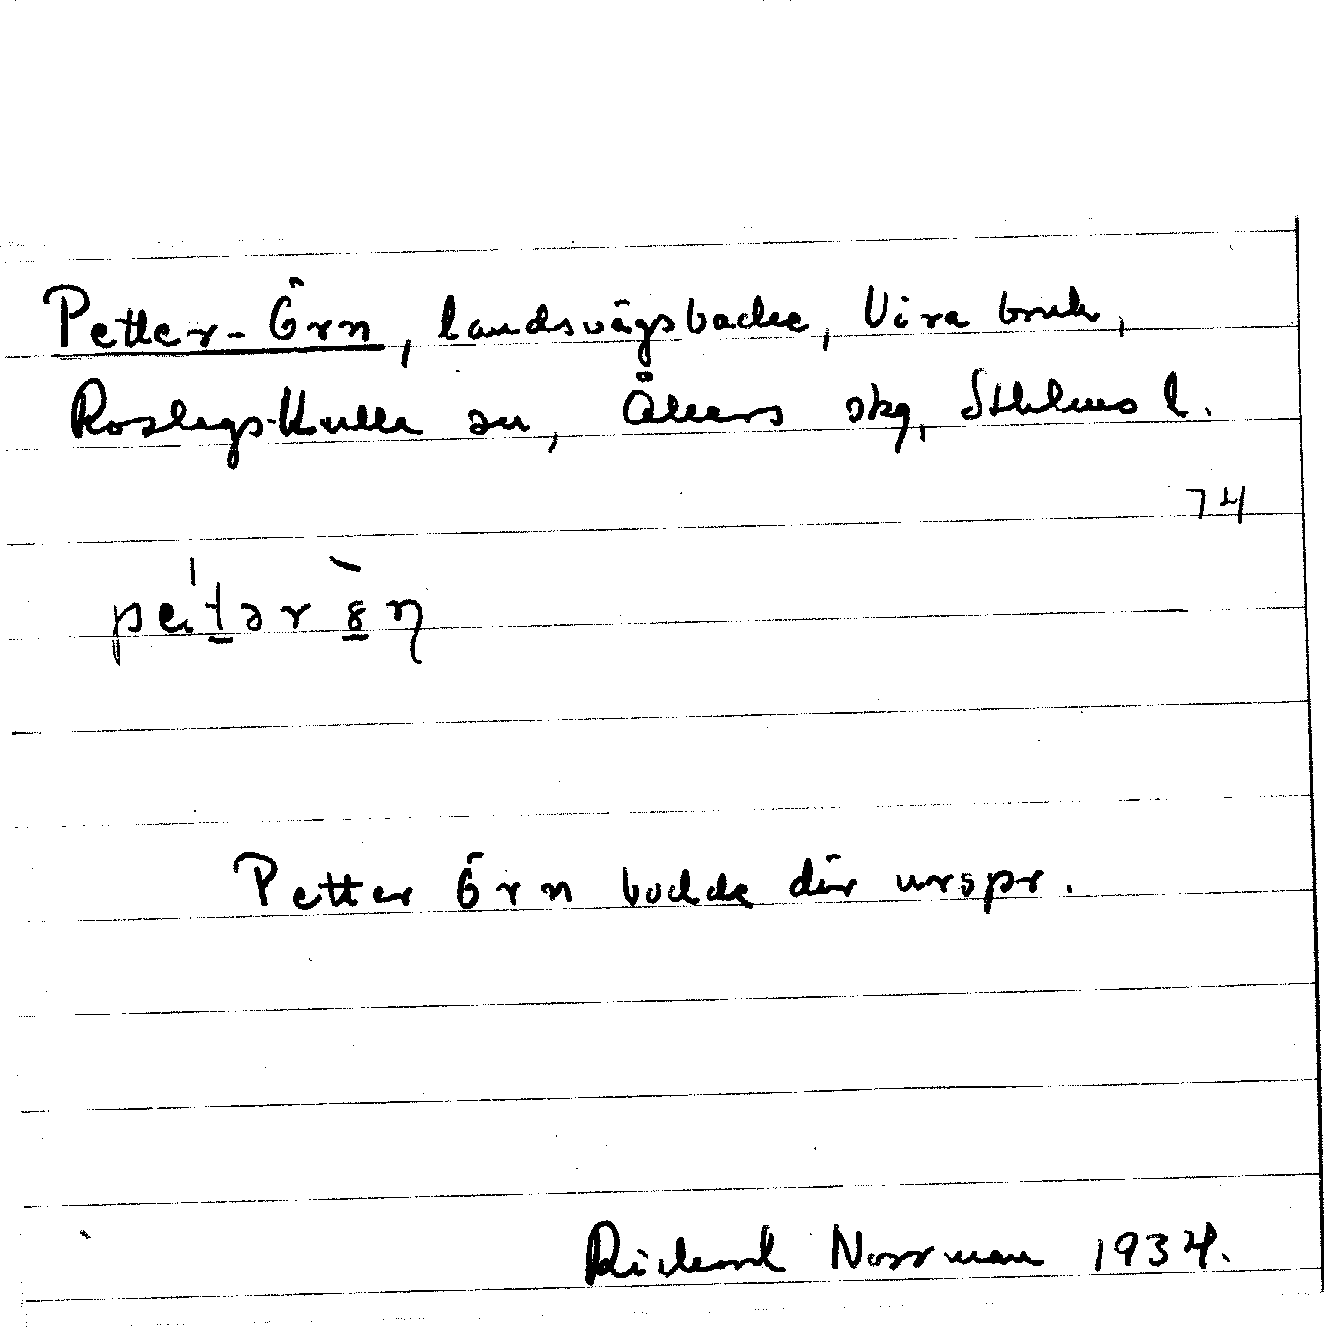 Petter-Örn, landsvägsbacke, Vira bruk,
Roslags-Kulla sn, Åkers skg, Sthlms l.
74
Petter Örn bodde där urspr.
Rickard Norrman 1934.